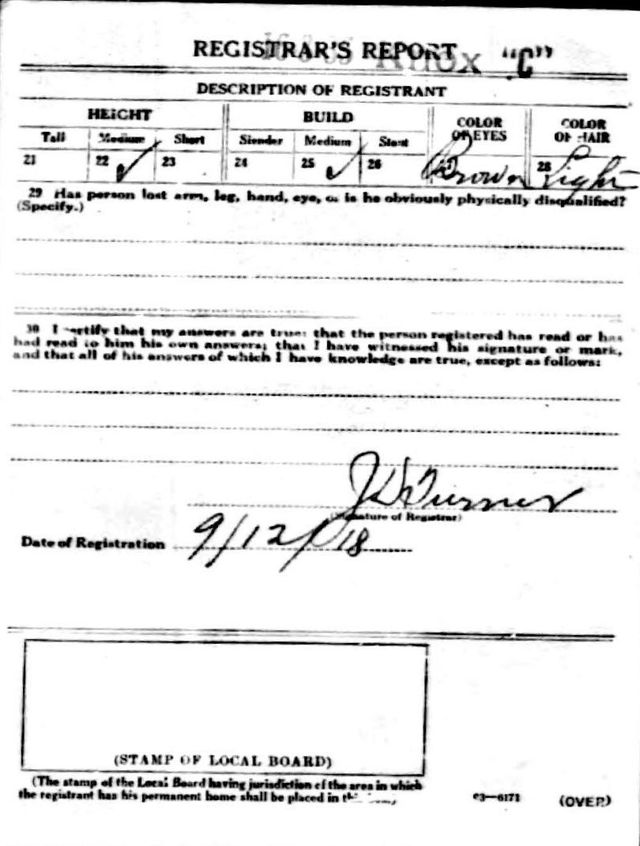 REGISTRAR'S REPORT Knox "C"
DESCRIPTION OF REGISTRANT
HEIGHT BUILD COLOR OF EYES COLOR OF HAIR
Tall Medium Short Slender Medium Stout
21 22 ✓ 23 24 25 ✓ 26 27 Brown 28 Light
29 Has person lost arm, leg, hand, eye, or is he obviously physically disqualified?
(Specify.)
30 I certify that my answers are true; that the person registered has read or has
had read to him his own answers; that I have witnessed his signature or mark,
and that all of his answers of which I have knowledge are true, except as follows:
J D Turner
(Signature of Registrar)
Date of Registration 9/12/18
(STAMP OF LOCAL BOARD)
(The stamp of the Local Board having jurisdiction of the area in which
the registrant has his permanent home shall be placed in
03—6171 (OVER)